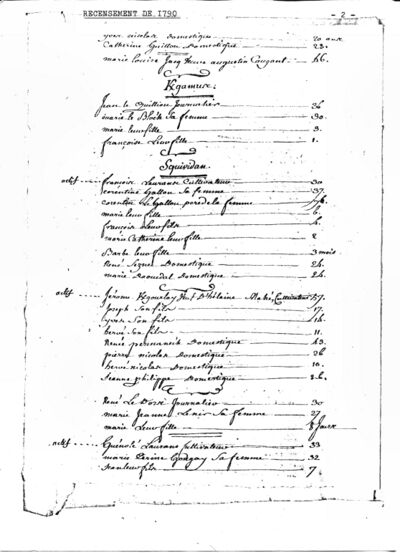 RECENSEMENT DE 1790 - 2 -
yves nicolas Domestique 20 ans
Catherine Guillou Domestique 23.
marie Louise 46.
Kgamus:
jean le journalier 36
marie le Sa femme 30.
marie leur fille 3.
françoise Leur fille 1.
Squividan.
actif françois Laurans Cultivateur 30
Corentine gallou Sa femme 37.
Corentin Le gallou pere de la femme
marie leur fille 6.
françois Leur fils 4.
marie Catherine leur fille 2
Barbe leur fille 3 mois
René Domestique 24.
marie Domestique 24.
actif Jérome Cultivateur 47.
Joseph Son fils 17.
yves Son fils 14.
hervé Son fils 11.
Renée Domestique 43.
pierre nicolas Domestique 26
hervé nicolas Domestique 10.
Jeanne philippe Domestique
René Le Journalier 30
marie Jeanne Sa femme 27
marie Leur fille 8 jours
actif Guénolé Laurans Cultivateur 33
marie Sa femme 32
jean leur fils 7